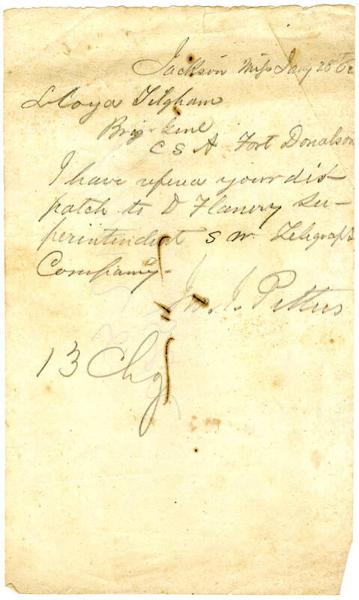 Jackson Miss Jany 28 62
Lloyd Tilgham
Brig Genl
C S A Fort Donalson
I have refered your dis
patch to D Flanery Su-
perintendent S W Telegraph
Company-
Jno. J. Pettus
13 Chg